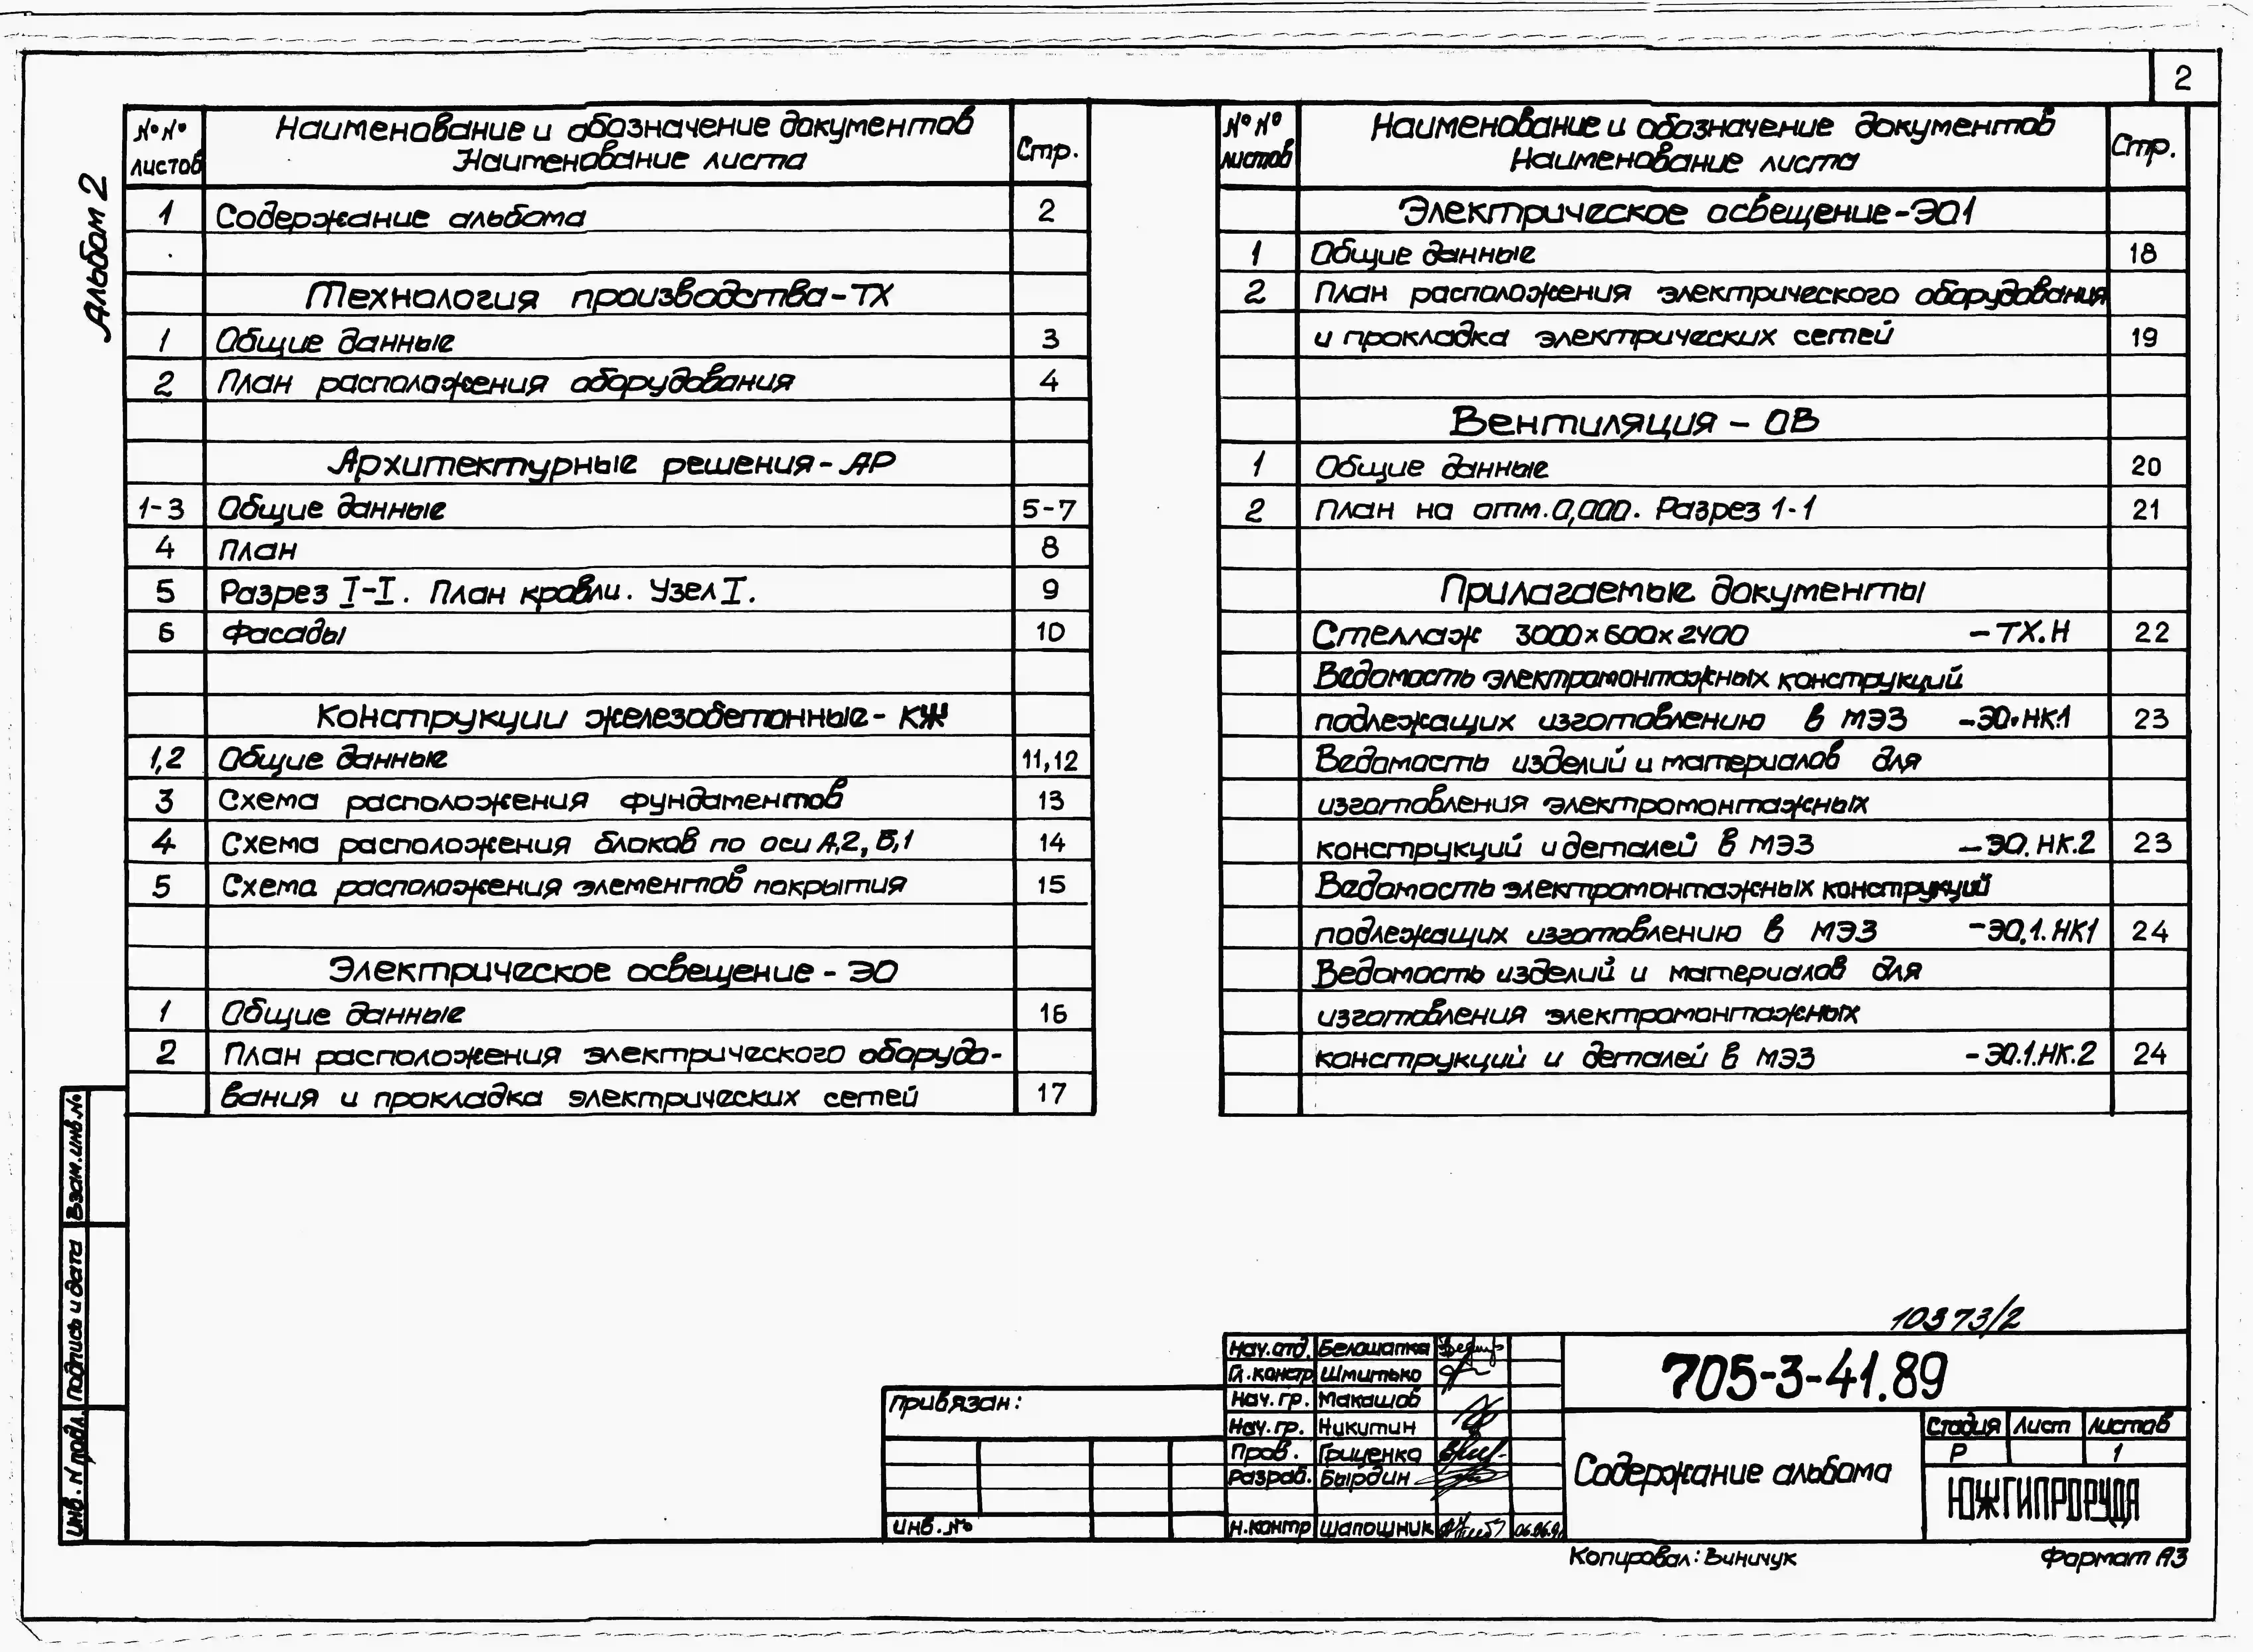 2
Альбом 2
№№ листов
Наименование и обозначение документов
Наименование листа
Стр.
1 Содержание альбома 2
Технология производства-ТХ
1 Общие данные 3
2 План расположения оборудования 4
Архитектурные решения-АР
1-3 Общие данные 5-7
4 План 8
5 Разрез I-I. План кровли. Узел I. 9
6 Фасады 10
Конструкции железобетонные-КЖ
1,2 Общие данные 11,12
3 Схема расположения фундаментов 13
4 Схема расположения блоков по оси А,2, Б,1 14
5 Схема расположения элементов покрытия 15
Электрическое освещение-ЭО
1 Общие данные 16
2 План расположения электрического оборудо-
вания и прокладка электрических сетей 17
№№ листов
Наименование и обозначение документов
Наименование листа
Стр.
Электрическое освещение-ЭО1
1 Общие данные 18
2 План расположения электрического оборудования
и прокладка электрических сетей 19
Вентиляция - ОВ
1 Общие данные 20
2 План на отм. 0,000. Разрез 1-1 21
Прилагаемые документы
Стеллаж 3000х600х2400 -ТХ.Н 22
Ведомость электромонтажных конструкций
подлежащих изготовлению в МЭЗ -ЭО.НК.1 23
Ведомость изделий и материалов для
изготовления электромонтажных
конструкций и деталей в МЭЗ -ЭО.НК.2 23
Ведомость электромонтажных конструкций
подлежащих изготовлению в МЭЗ -ЭО.1.НК1 24
Ведомость изделий и материалов для
изготовления электромонтажных
конструкций и деталей в МЭЗ -ЭО.1.НК.2 24
Взам.инв.№
Подпись и дата
Инв.N подл.
10373/2
Привязан:
Инв.№
Нач.отд. Белошапка
Гл.констр Шмитько
Нач.гр. Макашов
Нач.гр. Никитин
Пров. Гриценко
Разраб. Бырдин
Н.контр Шапошник
705-3-41.89
Содержание альбома
Стадия Лист Листов
Р 1
ЮЖГИПРОРУДА
Копировал: Виничук
Формат А3